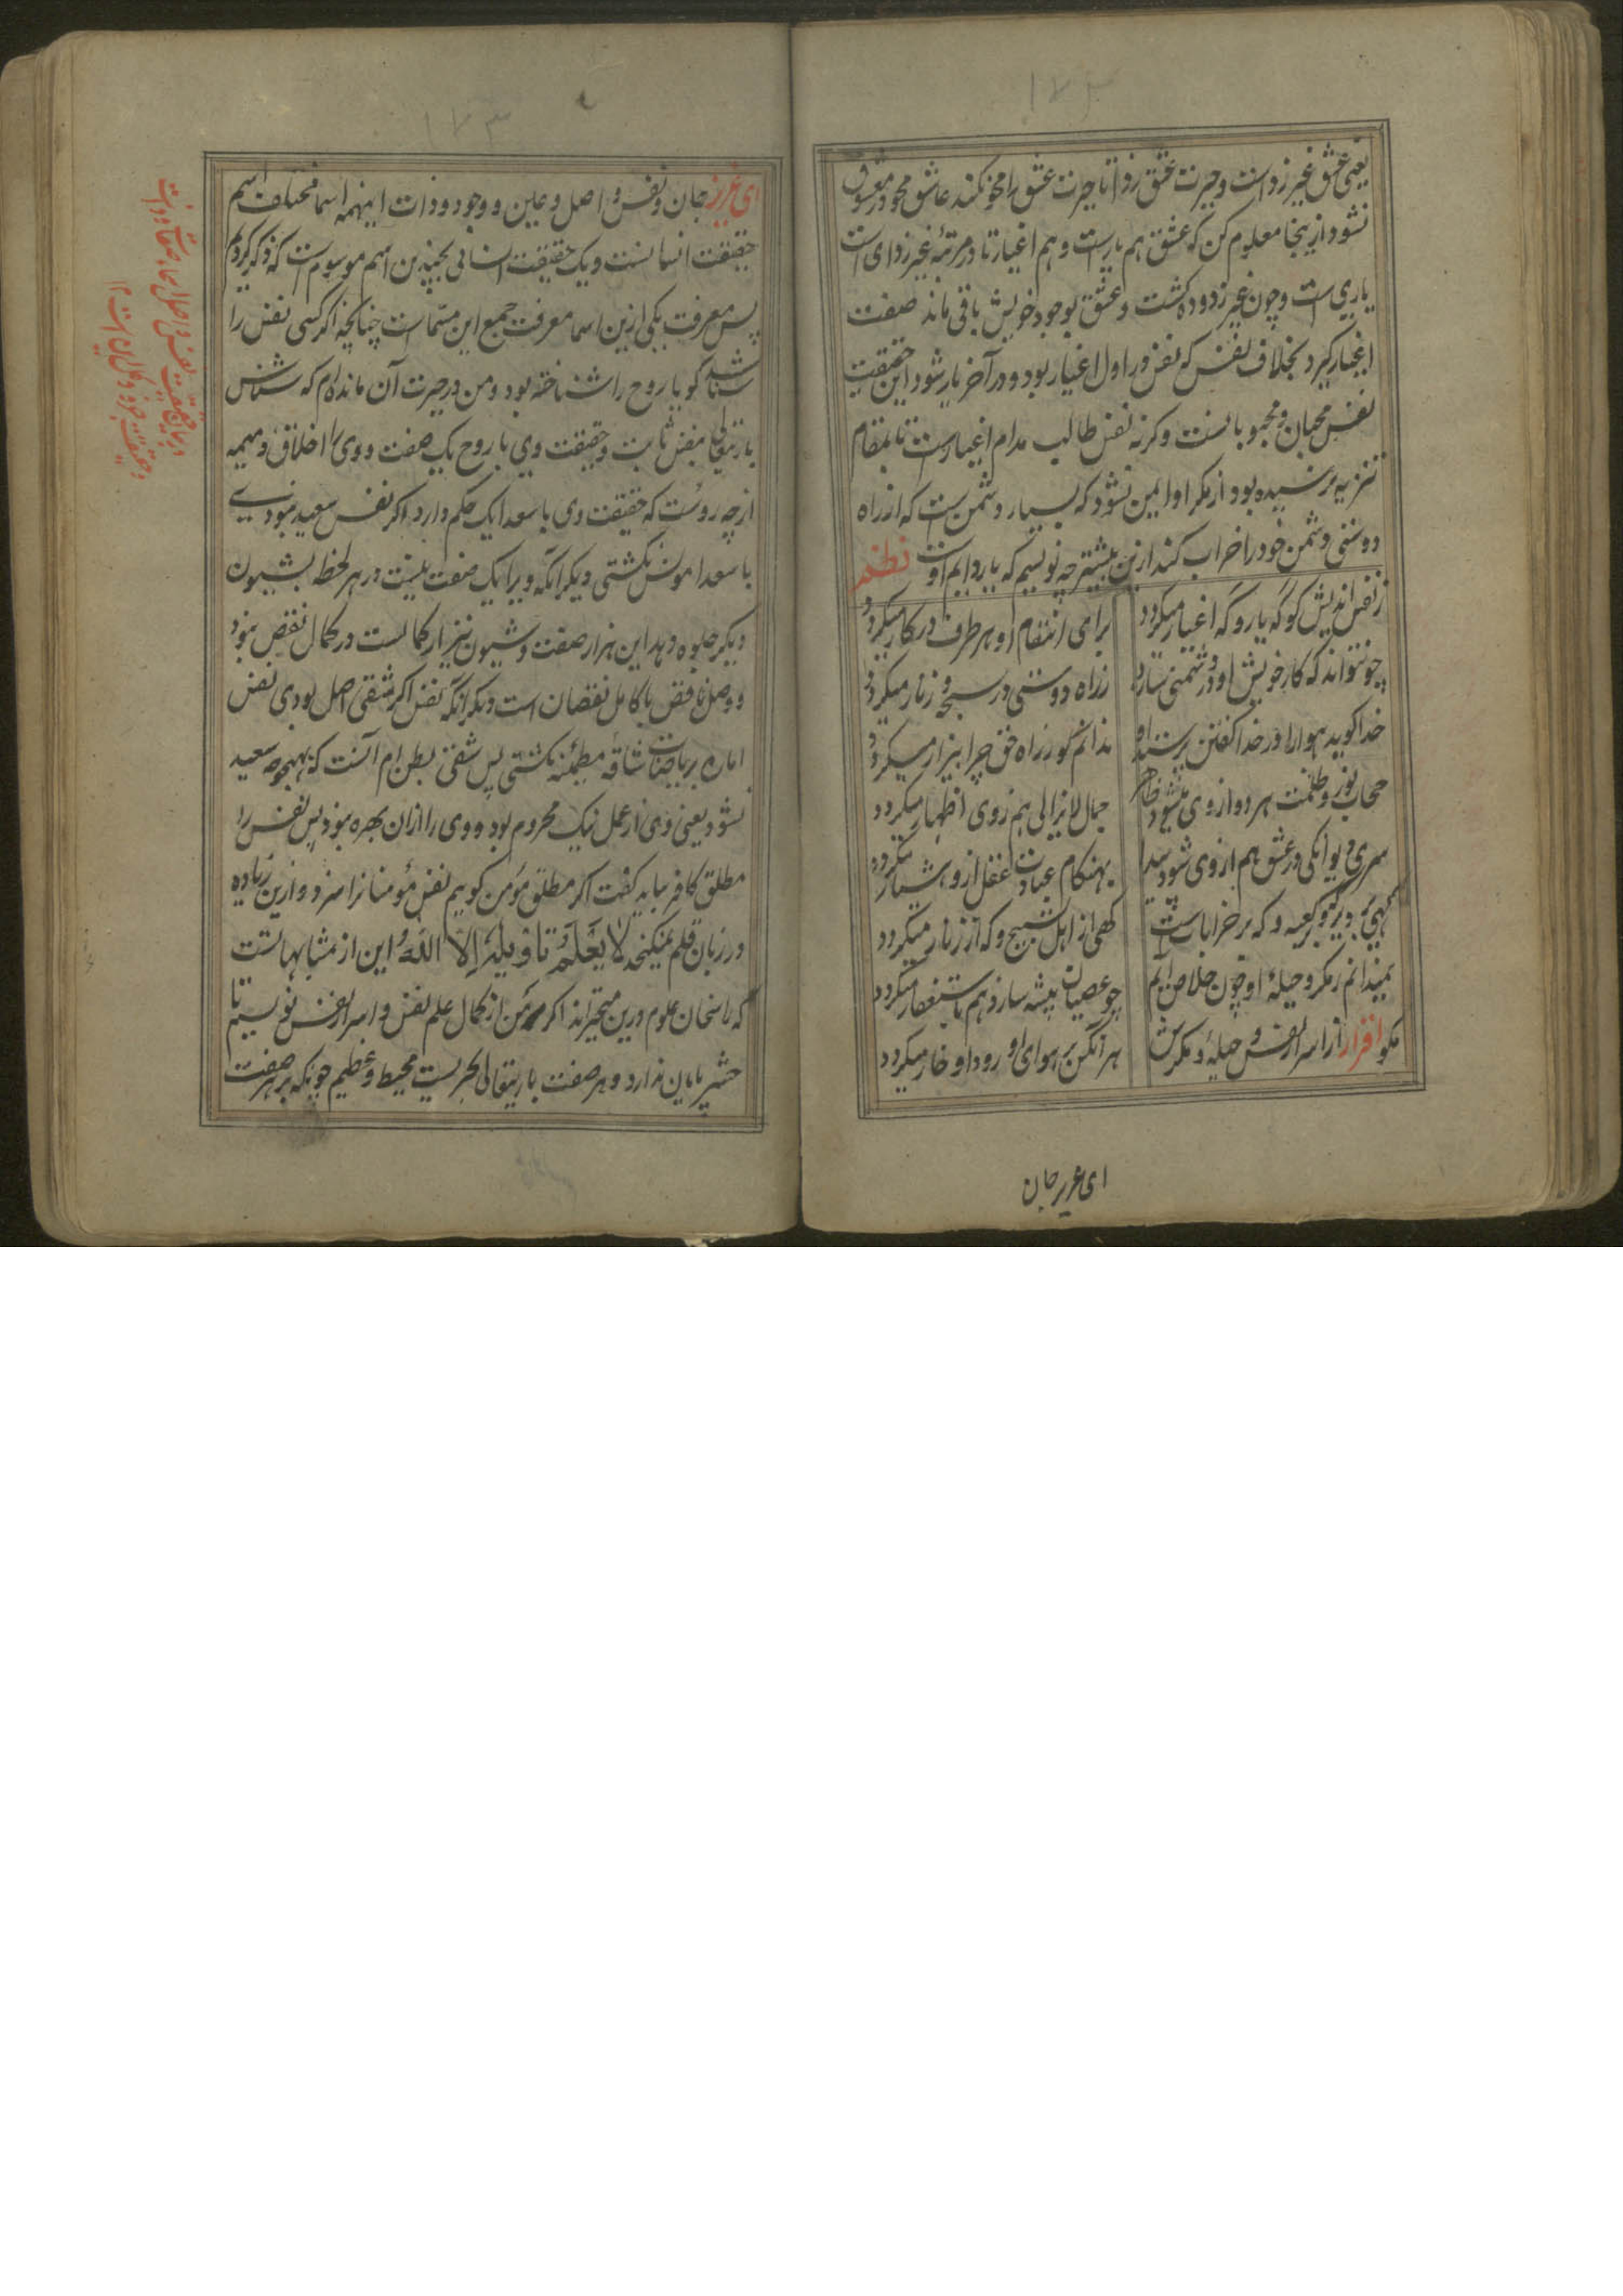 ۱۷۲
یعنی عشق غیر زدا است و حیرت عشق زدا تا حیرت عشق را محو نکند عاشق محو در معشوق
نشود ازینجا معلوم کن که عشق هم یارست و هم اغیار تا در مرتبهٔ غیر زدای است
یاری است و چون غیر زدوده گشت و عشق بوجود خویش باقی ماند صفت
اغیار گیرد بخلاف نفس که نفس در اول اغیار بود و در آخر یار شود این حقیقت
نفس محبان و محبوبانست و کرنه نفس طالب مدام اغیارست تا بمقام
تنزیه نرسیده بود از مکر او ایمن نشود که بسیار دشمن است که از راه
دوستی دشمن خود را خراب کند ازین بیشتر چه نویسم که یار دایم اوست نظم
ز نفس اندیش کو گه یار و گه اغیار میکردد
برای انتقام او بهر طرف در کار میکردد
چو نتواند که کار خویش او در دشمنی سازد
ز راه دوستی در سبحه و زنار میکردد
خدا گوید هوا را و ز خدا گفتن پرستد او
ندانم کو ز راه حق چرا بیزار میکردد
حجاب نور و ظلمت هر دو از وی میشود ظاهر
جمال لایزالی هم ز وی اظهار میکردد
سری دیوانکی در عشق هم از وی شود پیدا
بهنکام عبادت عقل ازو هشیار میکردد
کهی بر دیر و بر کعبه و که بر خرابات است
کهی از اهل تسبیح و که از زنار میکردد
نمیدانم ز مکر و حیلهٔ او چون خلاص ایم
چو عصیان پیشه سازد هم باستغفار میکردد
مکو افراز از اسرار نفس و حیلهٔ و مکرش
هر آنکس بر هوای او رود او خار میکردد
ای عزیز جان
۱۷۳
ای عزیز جان و نفس و اصل و عین و وجود و ذات اینهمه اسما مختلف اسم
حقیقت انسانست و یک حقیقت انسانی بچندین اسم موسوم است که ذکر کردیم
پس معرفت یکی ازین اسما معرفت جمیع این مسماست چنانکه اگر کسی نفس را
شناسد گویا روح را شناخته بود و من در حیرت آن مانده‌ام که شناس
باریتعالی بنفس ثابت و حقیقت وی با روح یک صفت و وی را اخلاق ذمیمه
از چه روست که حقیقت وی با سعدا یک حکم دارد اکر نفس سعید نبودی
با سعدا مونس نکشتی دیکر آنکه ویرا یک صفت نیست در هر لحظه بشیون
دیکر جلوه دهد این هزار صفت و شیون نیز از کمالست در کمال نقص نبود
و وصل ناقص با کامل نقصان است دیکر آنکه نفس اکر شقی اصل بودی نفس
اماره بریاضات شاقه مطمئنه نکشتی پس شقی بطن ام آنست که بهیچوجه سعید
نشود یعنی وی از عمل نیک محروم بود و وی را از ان بهره نبود پس نفس را
مطلق کافر نباید کفت اکر مطلق مؤمن کویم نفس مؤمنانرا سزد و ازین زیاده
در زبان قلم نمیکنجد لا یعلم تاویله الا الله و این از متشابهاتست
که راسخان علوم درین متحیرند اکر من از کمال علم نفس و اسرار نفس نویسم تا
حشر پایان ندارد و هر صفت باریتعالی بحریست محیط و عظیم چونکه بر هر صفت
در بیان حقیقت نفس و اصل اسماء صفات و ذات
و حقیقت جزو و کل این است ۱۲